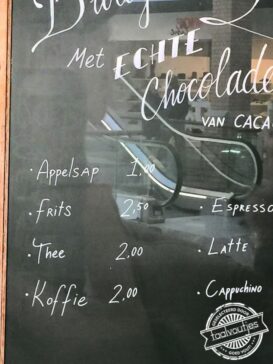 Met ECHTE
Chocolade
VAN CACA
· Appelsap 1,00
· Frits 2,50
· Thee 2.00
· Koffie 2.00
· Espresso
· Latte
· Cappuchino
taalvoutjes